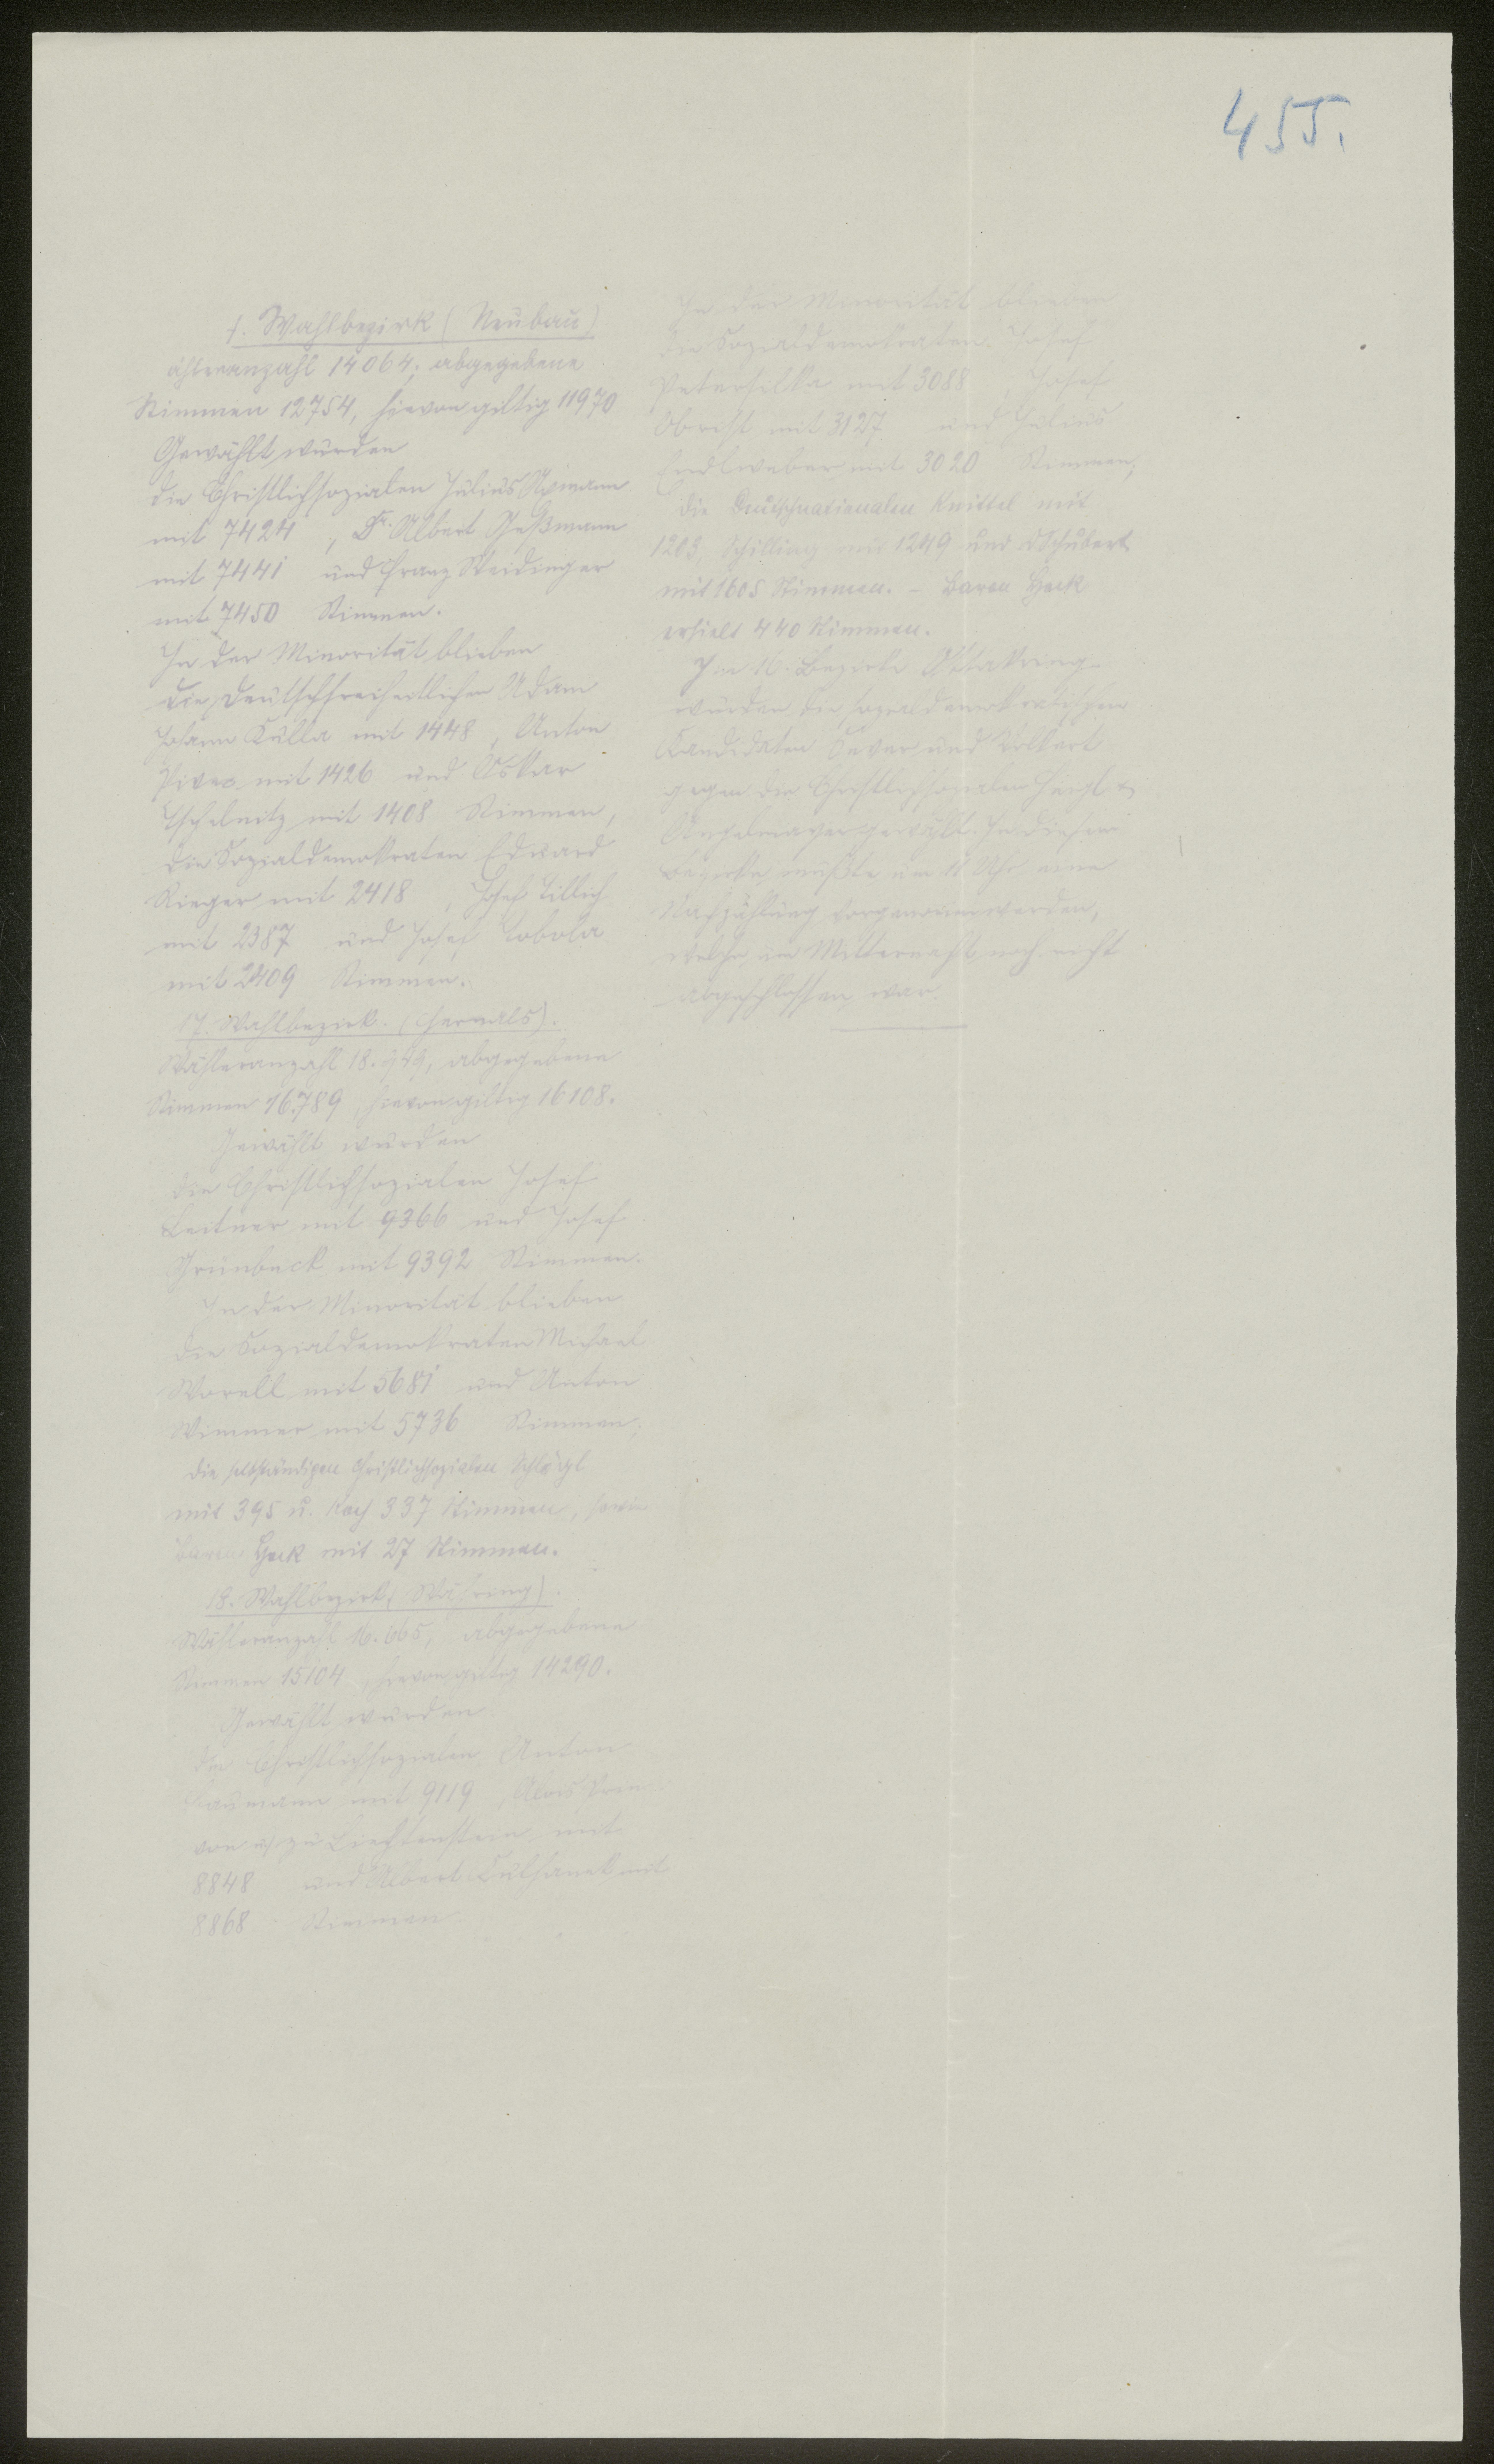 455.
7. Wahlbezirk (Neubau)
ähleranzahl 14064; abgegebene
Stimmen 12754, hievon giltig 11970
Gewählt wurden
die Christlichsozialen Julius Axmann
mit 7424, Dr. Albert Geßmann
mit 7441 und Franz Weidinger
mit 7450 Stimmen.
In der Minorität blieben
die Deutschfreiheitlichen Adam
Johann Kulla mit 1448, Anton
mit 1426 und Oskar
mit 1408 Stimmen,
die Sozialdemokraten Eduard
Rieger mit 2418, Josef Tillich
mit 2387 und Josef Tobola
mit 2409 Stimmen.
17. Wahlbezirk. (Hernals).
Wähleranzahl 18. abgegebene
Stimmen 16.789, hievon giltig 16108.
Gewählt wurden
die Christlichsozialen Josef
Leitner mit 9366 und Josef
Grünbeck mit 9392 Stimmen.
In der Minorität blieben
die Sozialdemokraten Michael
Worell mit 5681 und Anton
Wimmer mit 5736 Stimmen,
die selbständigen Christlichsozialen Schlögl
mit 395 u. Koch 337 Stimmen, sowie
Baron Hock mit 27 Stimmen.
18. Wahlbezirk (Währing).
Wähleranzahl 16.665, abgegebene
Stimmen 15104, hievon giltig 14290.
Gewählt wurden
die Christlichsozialen Anton
Baumann mit 9119, Alois Prinz
von u. zu Liechtenstein mit
8848 und Albert Kulhanek mit
8868 Stimmen
In der Minorität blieben
die Sozialdemokraten Josef
Petersilka mit 3088, Josef
Obrist mit 3127 und Julius
Endlweber mit 3020 Stimmen,
die Deutschnationalen Knittel mit
1203, Schilling mit 1249 und Schubert
mit 1605 Stimmen. – Baron Hock
erhielt 440 Stimmen.
Im 16. Bezirke Ottakring
wurden die sozialdemokratischen
Kandidaten Sever und Volkert
gegen die Christlichsozialen &
gewählt. In diesem
Bezirke mußte um 11 Uhr eine
Nachzählung vorgenommen werden,
welche um Mitternacht noch nicht
abgeschlossen war.